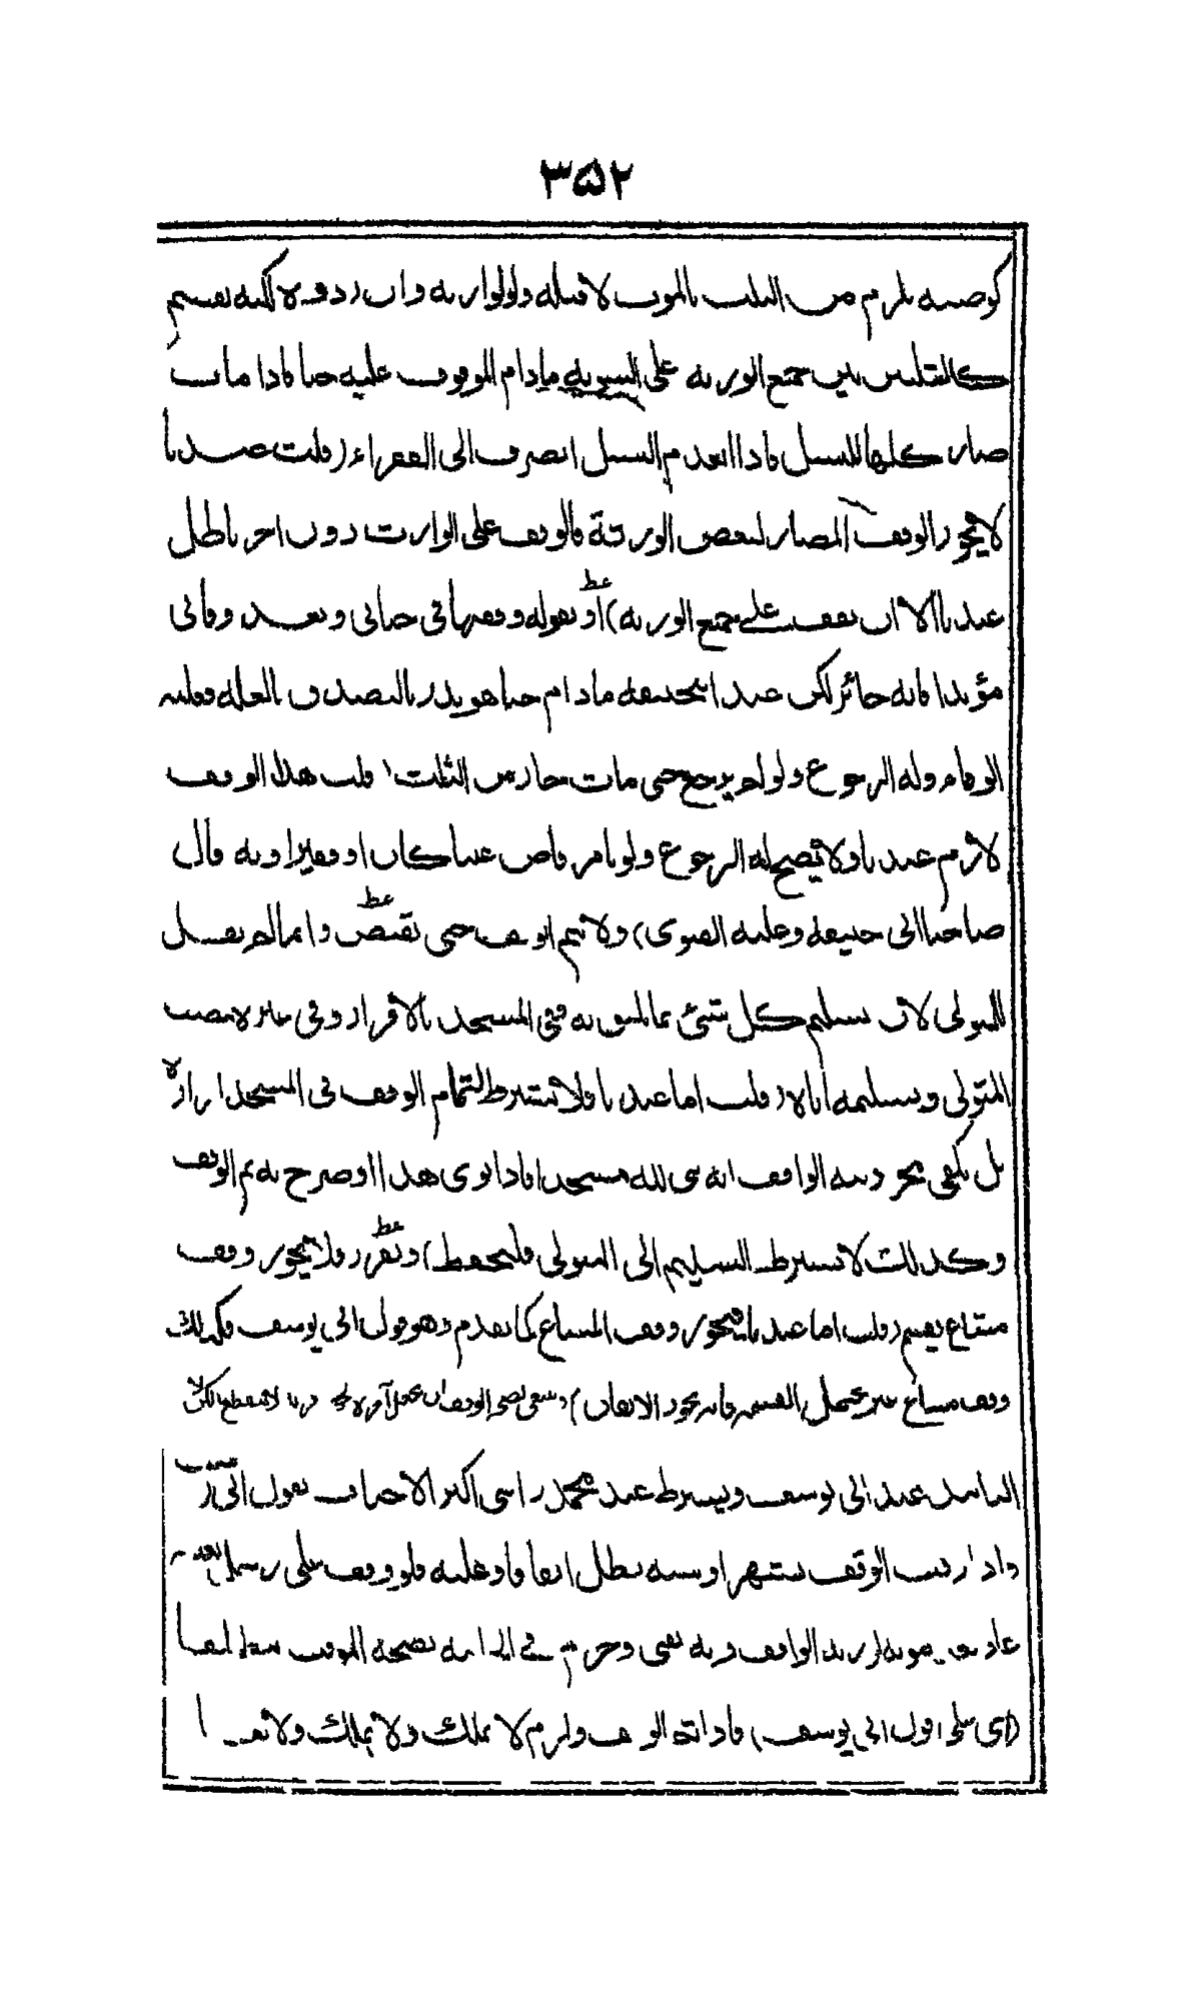 ۳۵۲
كوصية يلزم من الثلث بالموت لا قبله ولو لوارثه وان ردوه لكنه يقسم
كالثلثين بين جميع الورثة على السوية مادام الموقوف عليه حيا فاذا مات
صار كلها للنسل فاذا انعدم النسل انصرف الى الفقراء (قلت عندنا
لا يجوز الوقف المضار لبعض الورثة فالوقف على الوارث دون اخر باطل
عندنا الا ان يقف على جميع الورثة) او بقوله وقفها في حياتي وبعد وفاتي
مؤبدا فانه جائز لكن عند ابيحنيفة مادام حيا هو نذر بالتصدق بالغلة فعليه
الوفاء وله الرجوع ولو لم يرجع حتى مات جاز من الثلث (قلت هذا الوقف
لازم عندنا ولا يصح له الرجوع ولو بامر قاض غنيا كان او فقيرا وبه قال
صاحبا ابي حنيفة وعليه الفتوى) ولا يتم الوقف حتى يقبض وانما لم يقل
للمتولي لان تسليم كل شئ بما يليق به ففي المسجد بالافراز وفي غيره بنصب
المتولي وبتسليمه اياه (قلت اما عندنا فلا يشترط لتمام الوقف في المسجد افرازه
بل يكفي مجرد نية الواقف انه بنى لله مسجدا فاذا نوى هذا او صرح به تم الوقف
وكذلك لا يشترط التسليم الى المتولي فليحفظ) ويفرز فلا يجوز وقف
مشاع يقسم (قلت اما عندنا فيجوز وقف المشاع كما تقدم وهو قول ابي يوسف فكذلك
وقف مشاع غير محتمل القسمة فانه يجوز بالاتفاق)
التابيد عند ابي يوسف ويشترط عند محمد
واذا وقت الوقف بشهر او سنة بطل اتفاقا وعليه فلو وقف على رجل بعينه
عاد بعد موته لورثة الواقف وبه يفتى وجزم في
(اي على قول ابي يوسف) فاذا تم الوقف ولزم لا يملك ولا يملك ولا يعار